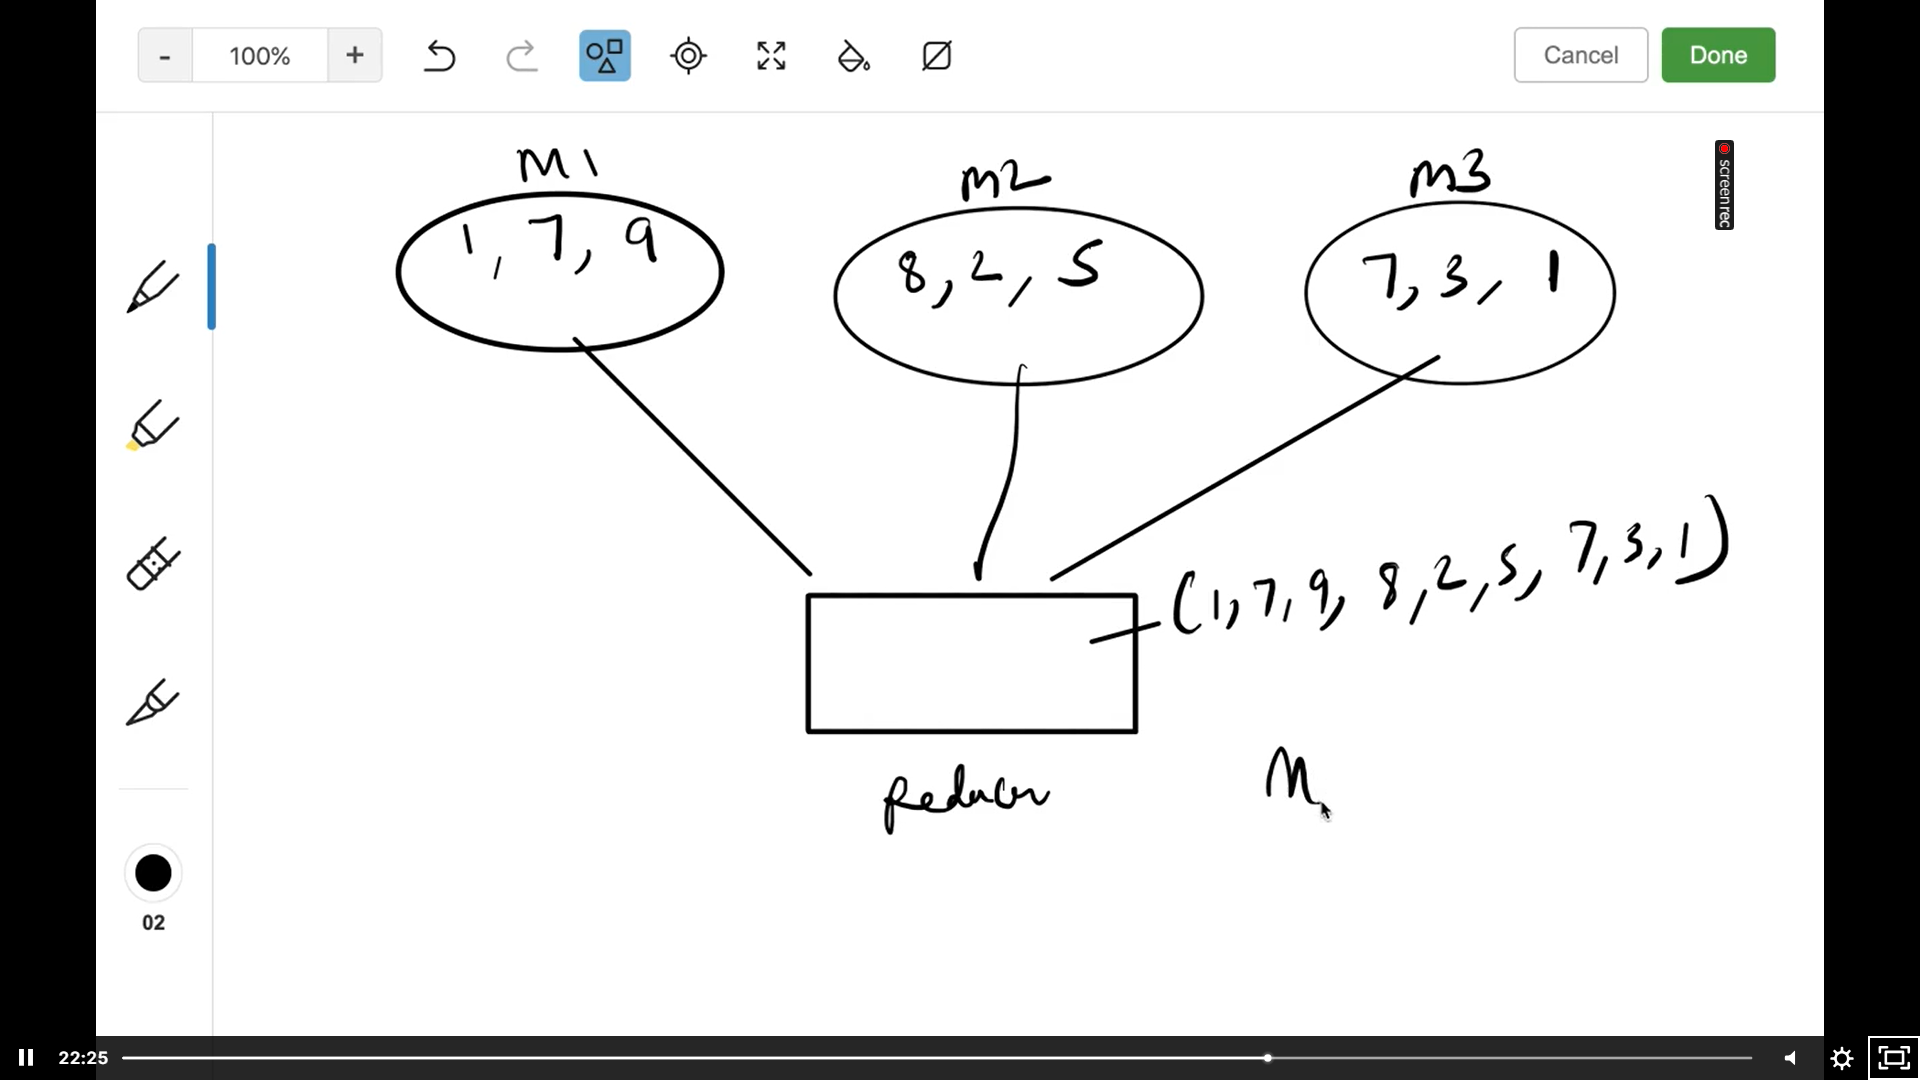 - 100% +
Cancel
Done
M1
m2
m3
screenrec
1, 7, 9
8, 2, 5
7, 3, 1
(1, 7, 9, 8, 2, 5, 7, 3, 1)
Reducer
M
02
22:25